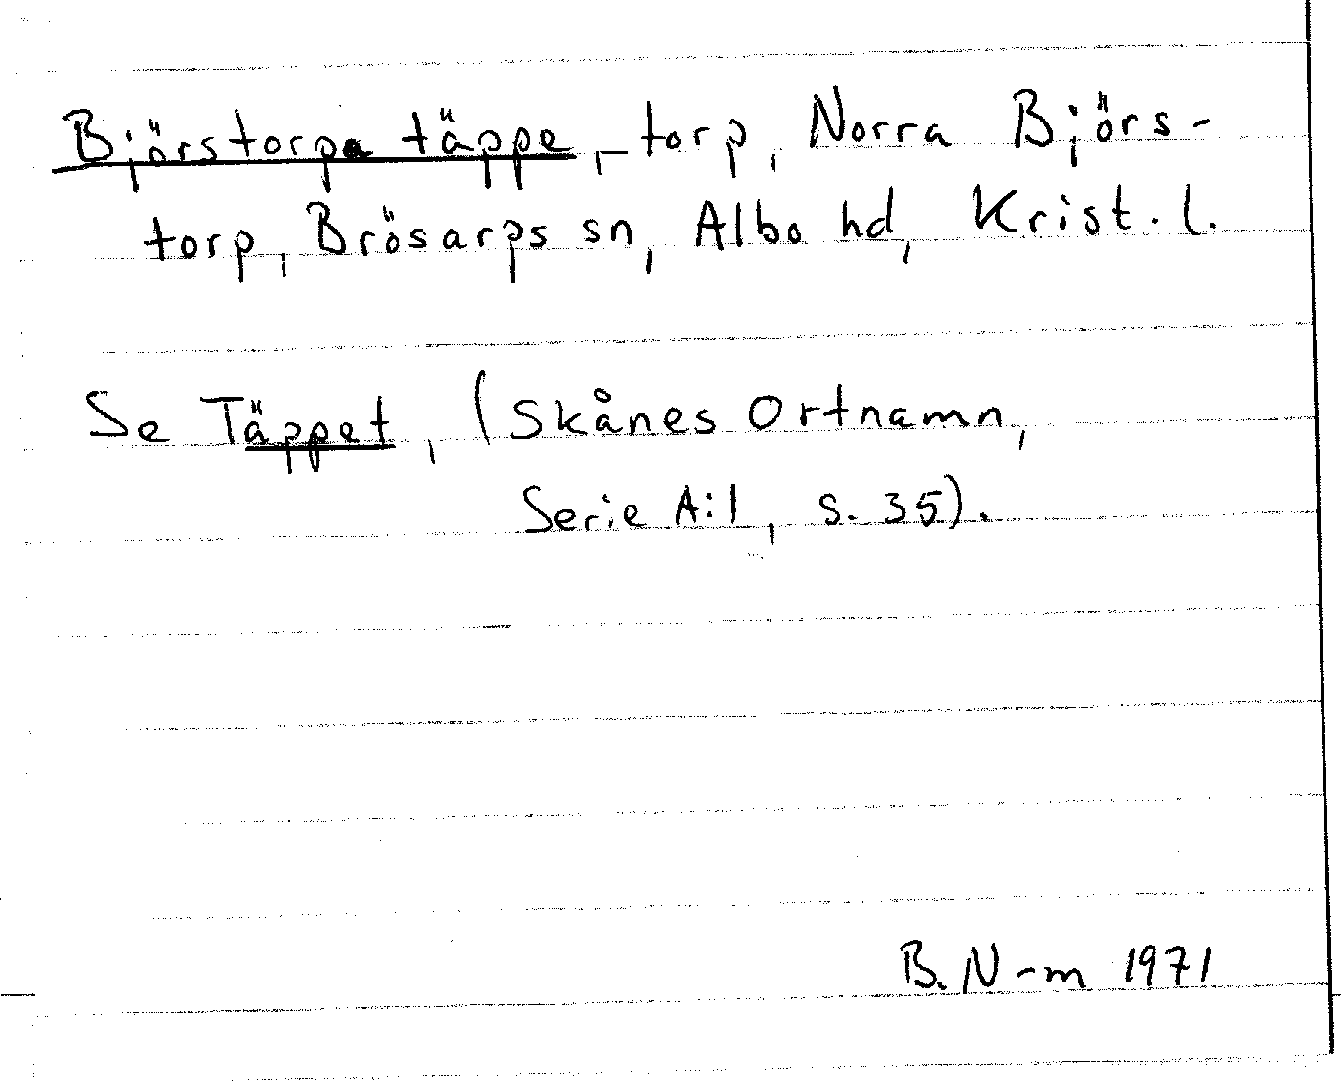 Björstorpa täppe, torp, Norra Björs-
torp, Brösarps sn, Albo hd, Krist. l.
Se Täppet, (Skånes Ortnamn,
Serie A:1, s. 35).
B. N-m 1971